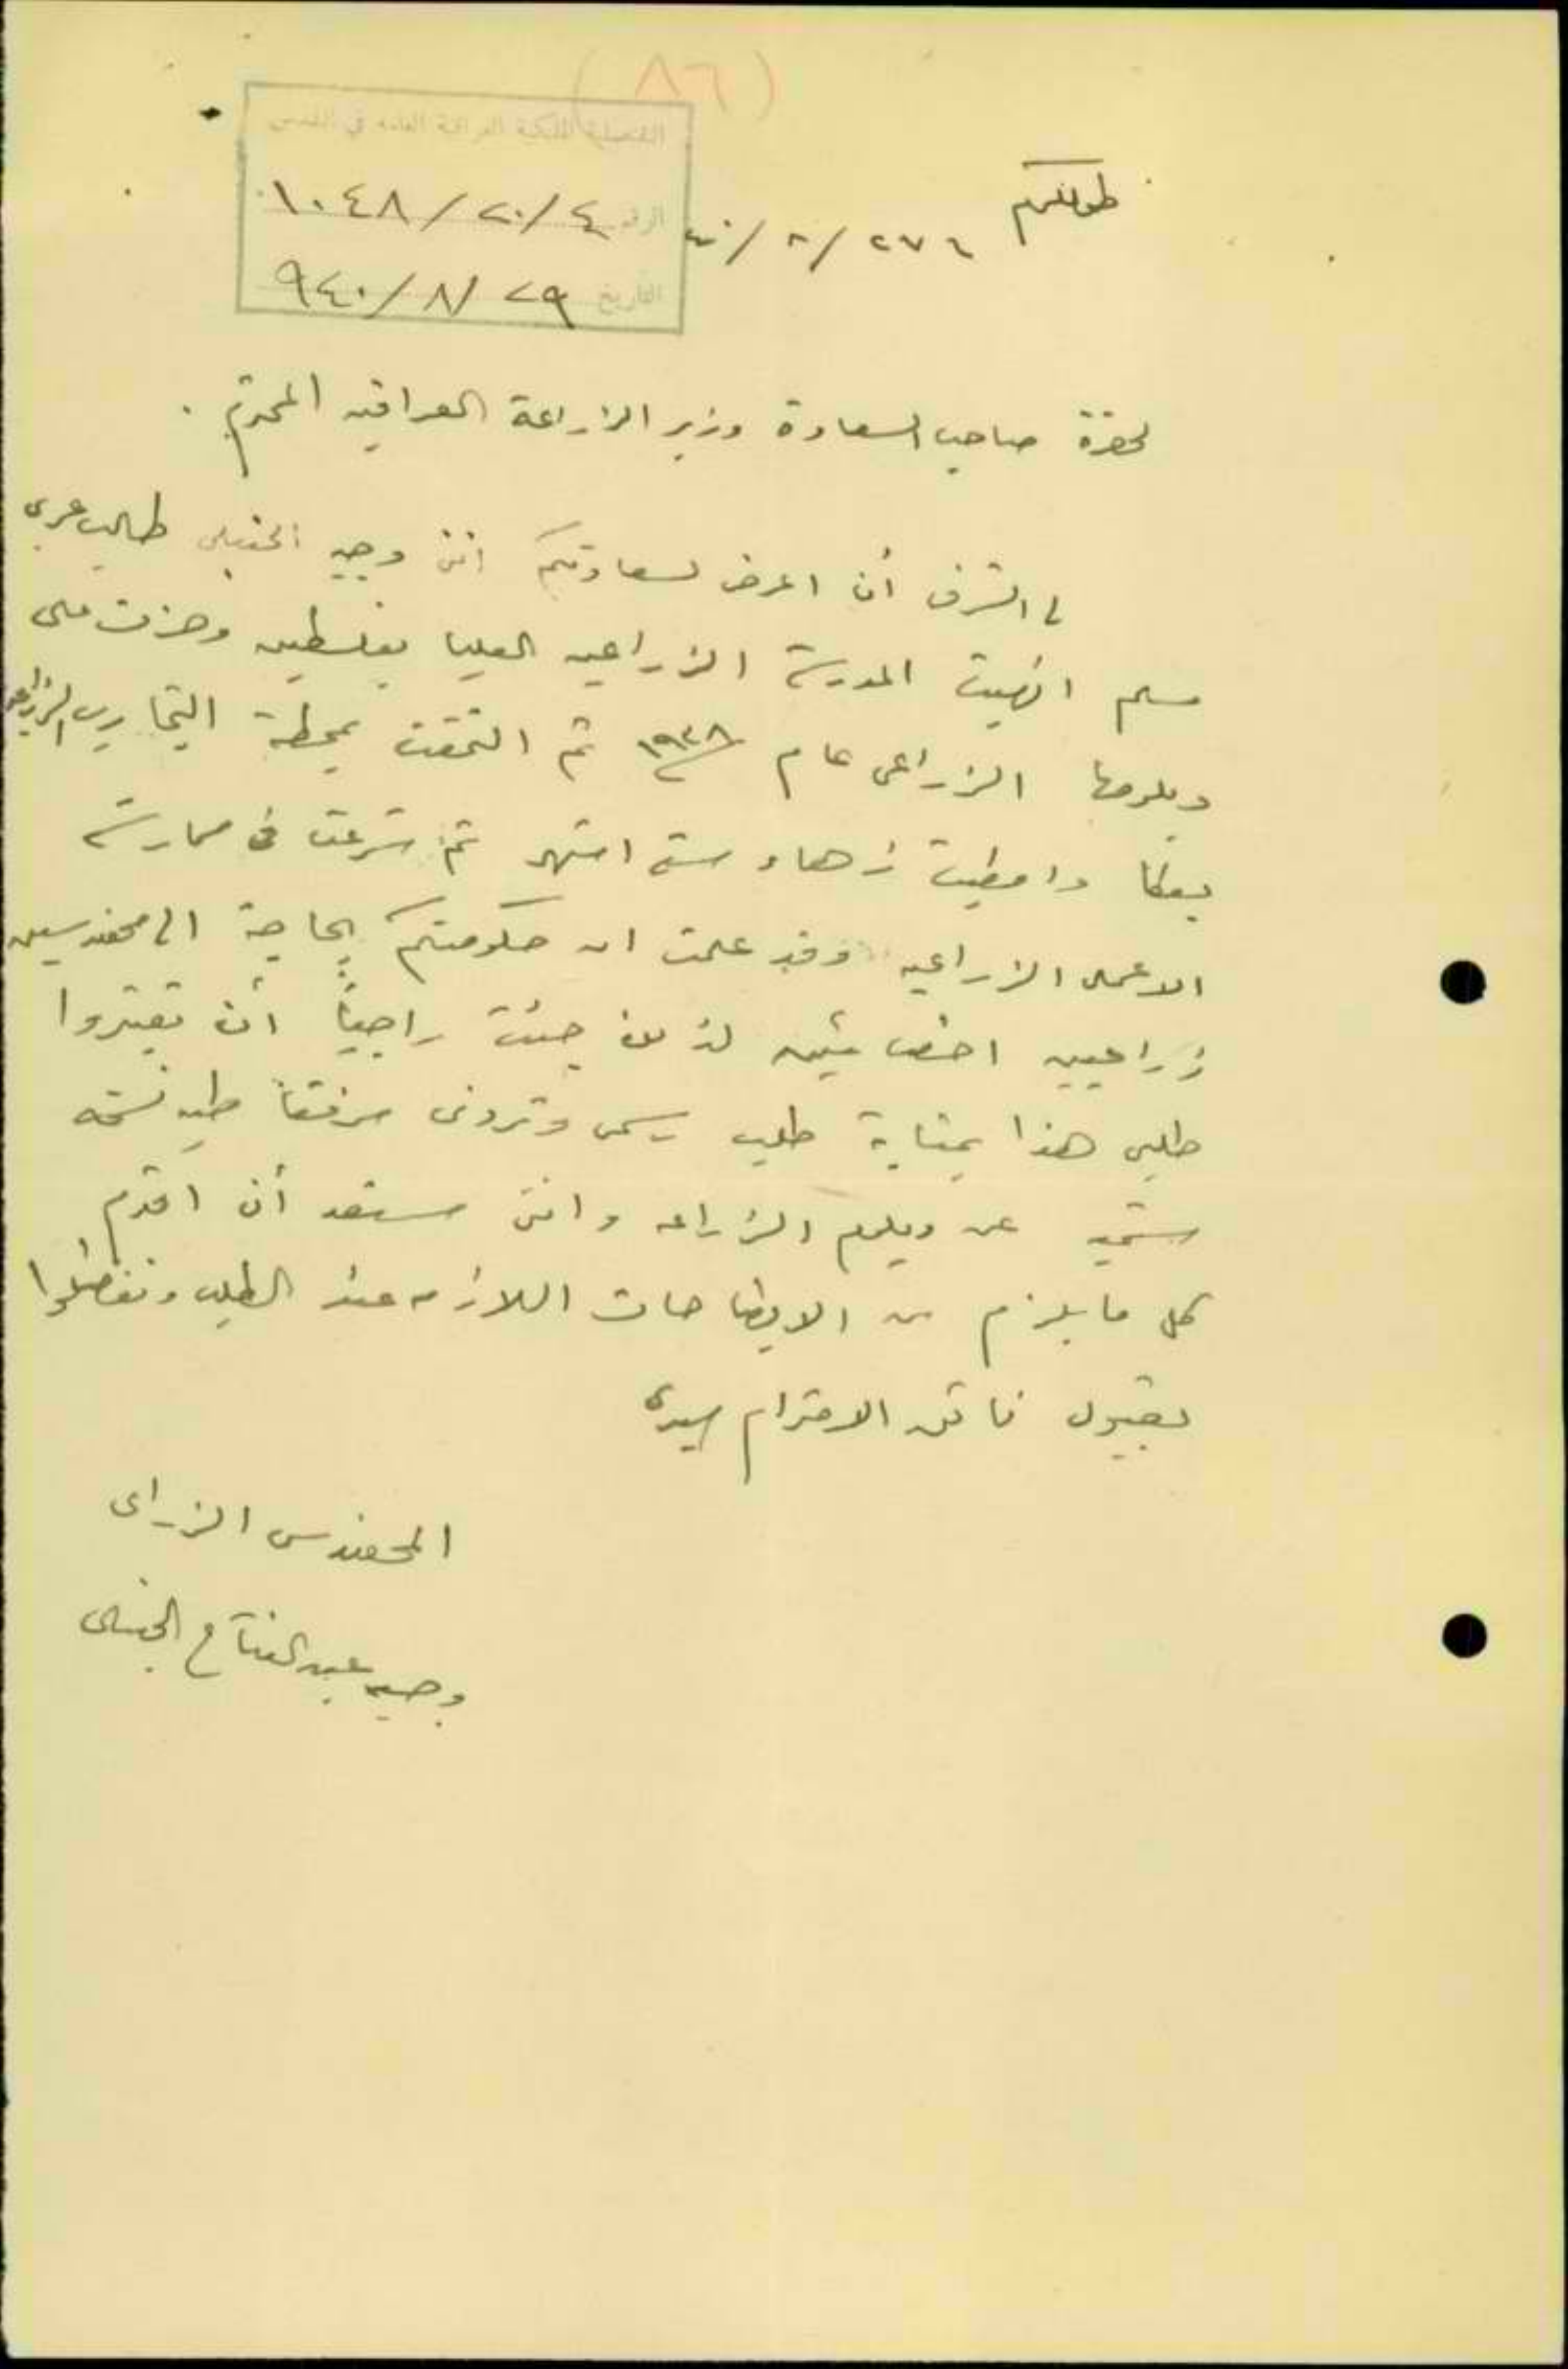 (٨٦)
القنصلية الملكية العراقية العامة في القدس
الرقم ١٠٤٨/٢٠/٤
التاريخ ٢٩/٨/٩٤٠
طولكرم
لحضرة صاحب السعادة وزير الزراعة العراقيه المحترم .
لي الشرف أن اعرض لسعادتكم انني وجيه الحنبلي طالب عربي
مسلم انهيت المدرسة الزراعيه العليا بفلسطين وحزت على
دبلومها الزراعي عام ١٩٣٨ ثم التحقت بمحطة التجارب الزراعيه
بعكا وامضيت زهاء ستة اشهر ثم شرعت في ممارسة
الاعمال الزراعيه وقد علمت ان حكومتكم بحاجة الى مهندسين
زراعيين اخصائيين لذلك جئت راجياً أن تعتبروا
طلبي هذا بمثابة طلب رسمي وترونى مرفقاً طيه نسخه
عن دبلوم الزراعه وانني مستعد أن اقدم
كل ما يلزم من الايضاحات اللازمه عند الطلب وتفضلوا
بقبول فائق الاحترام سيدي
المهندس الزراعي
وجيه عبد الفتاح الحنبلي